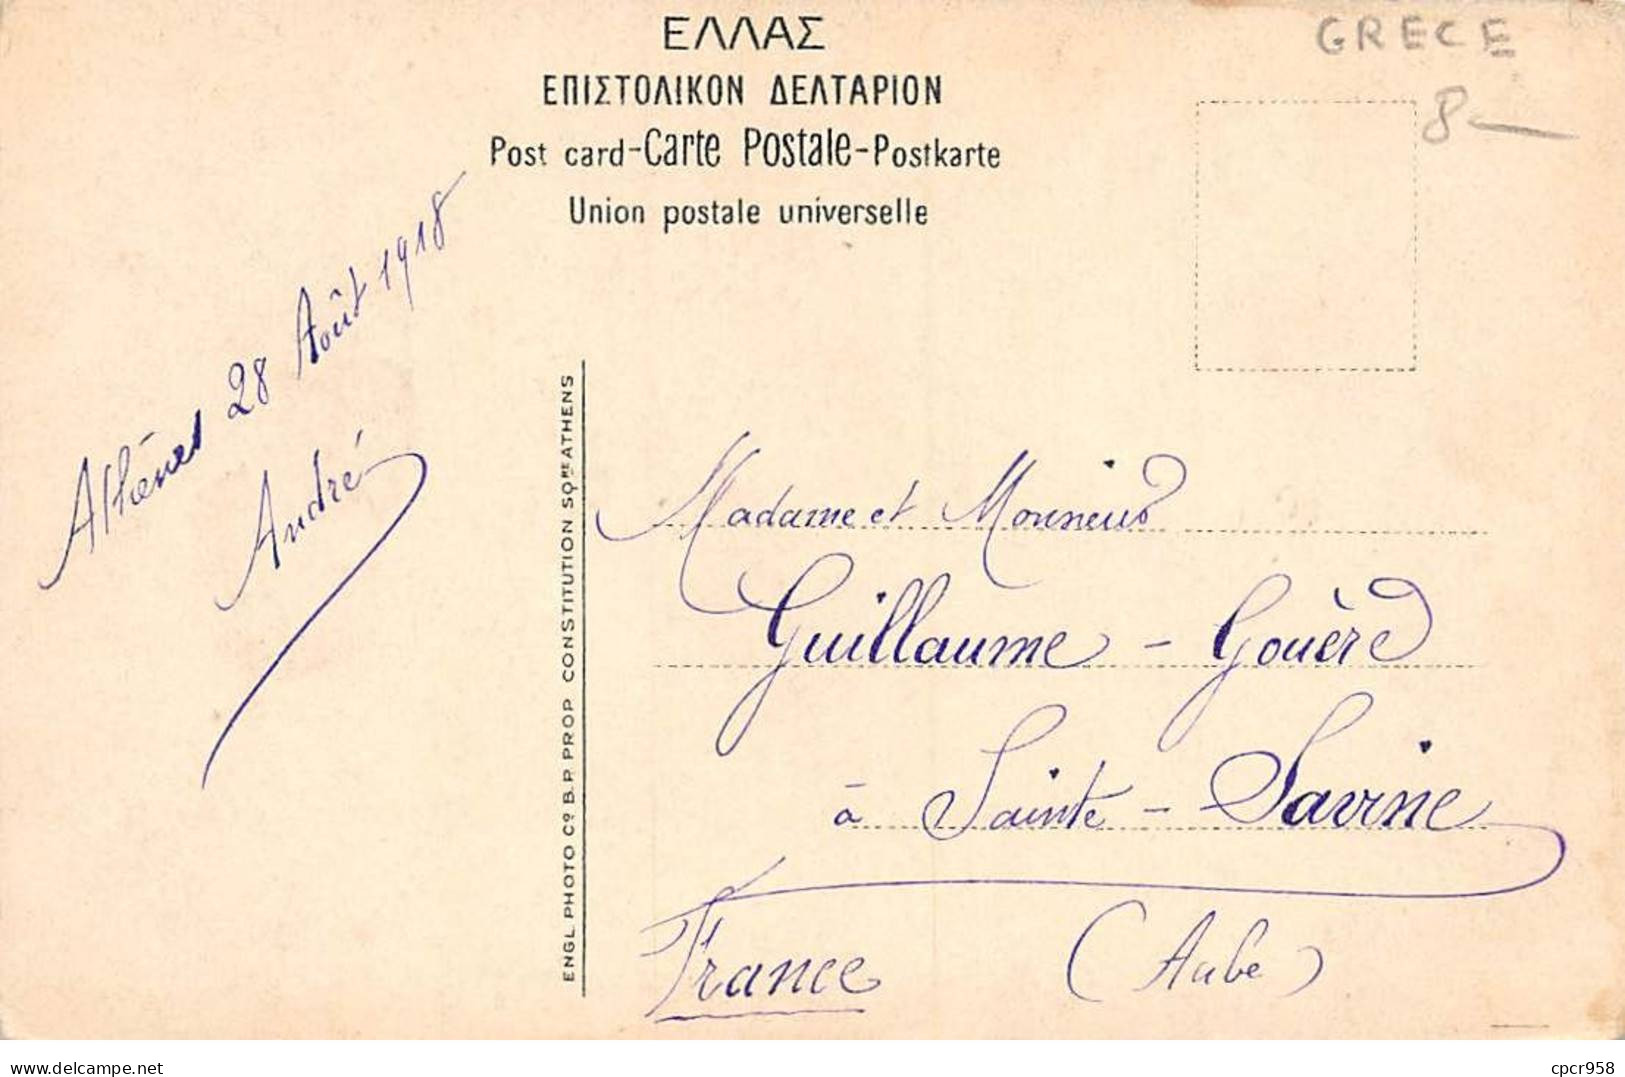 ΕΛΛΑΣ
ΕΠΙΣΤΟΛΙΚΟΝ ΔΕΛΤΑΡΙΟΝ
Post card-Carte Postale-Postkarte
Union postale universelle
GRECE
8
Athènes 28 Août 1918
André
ENGL. PHOTO Cº B.P. PROP CONSTITUTION SQᴿᴱ ATHENS
Madame et Monsieur
Guillaume - Gouère
à Sainte - Savine
France (Aube)
delcampe.net
cpcr958